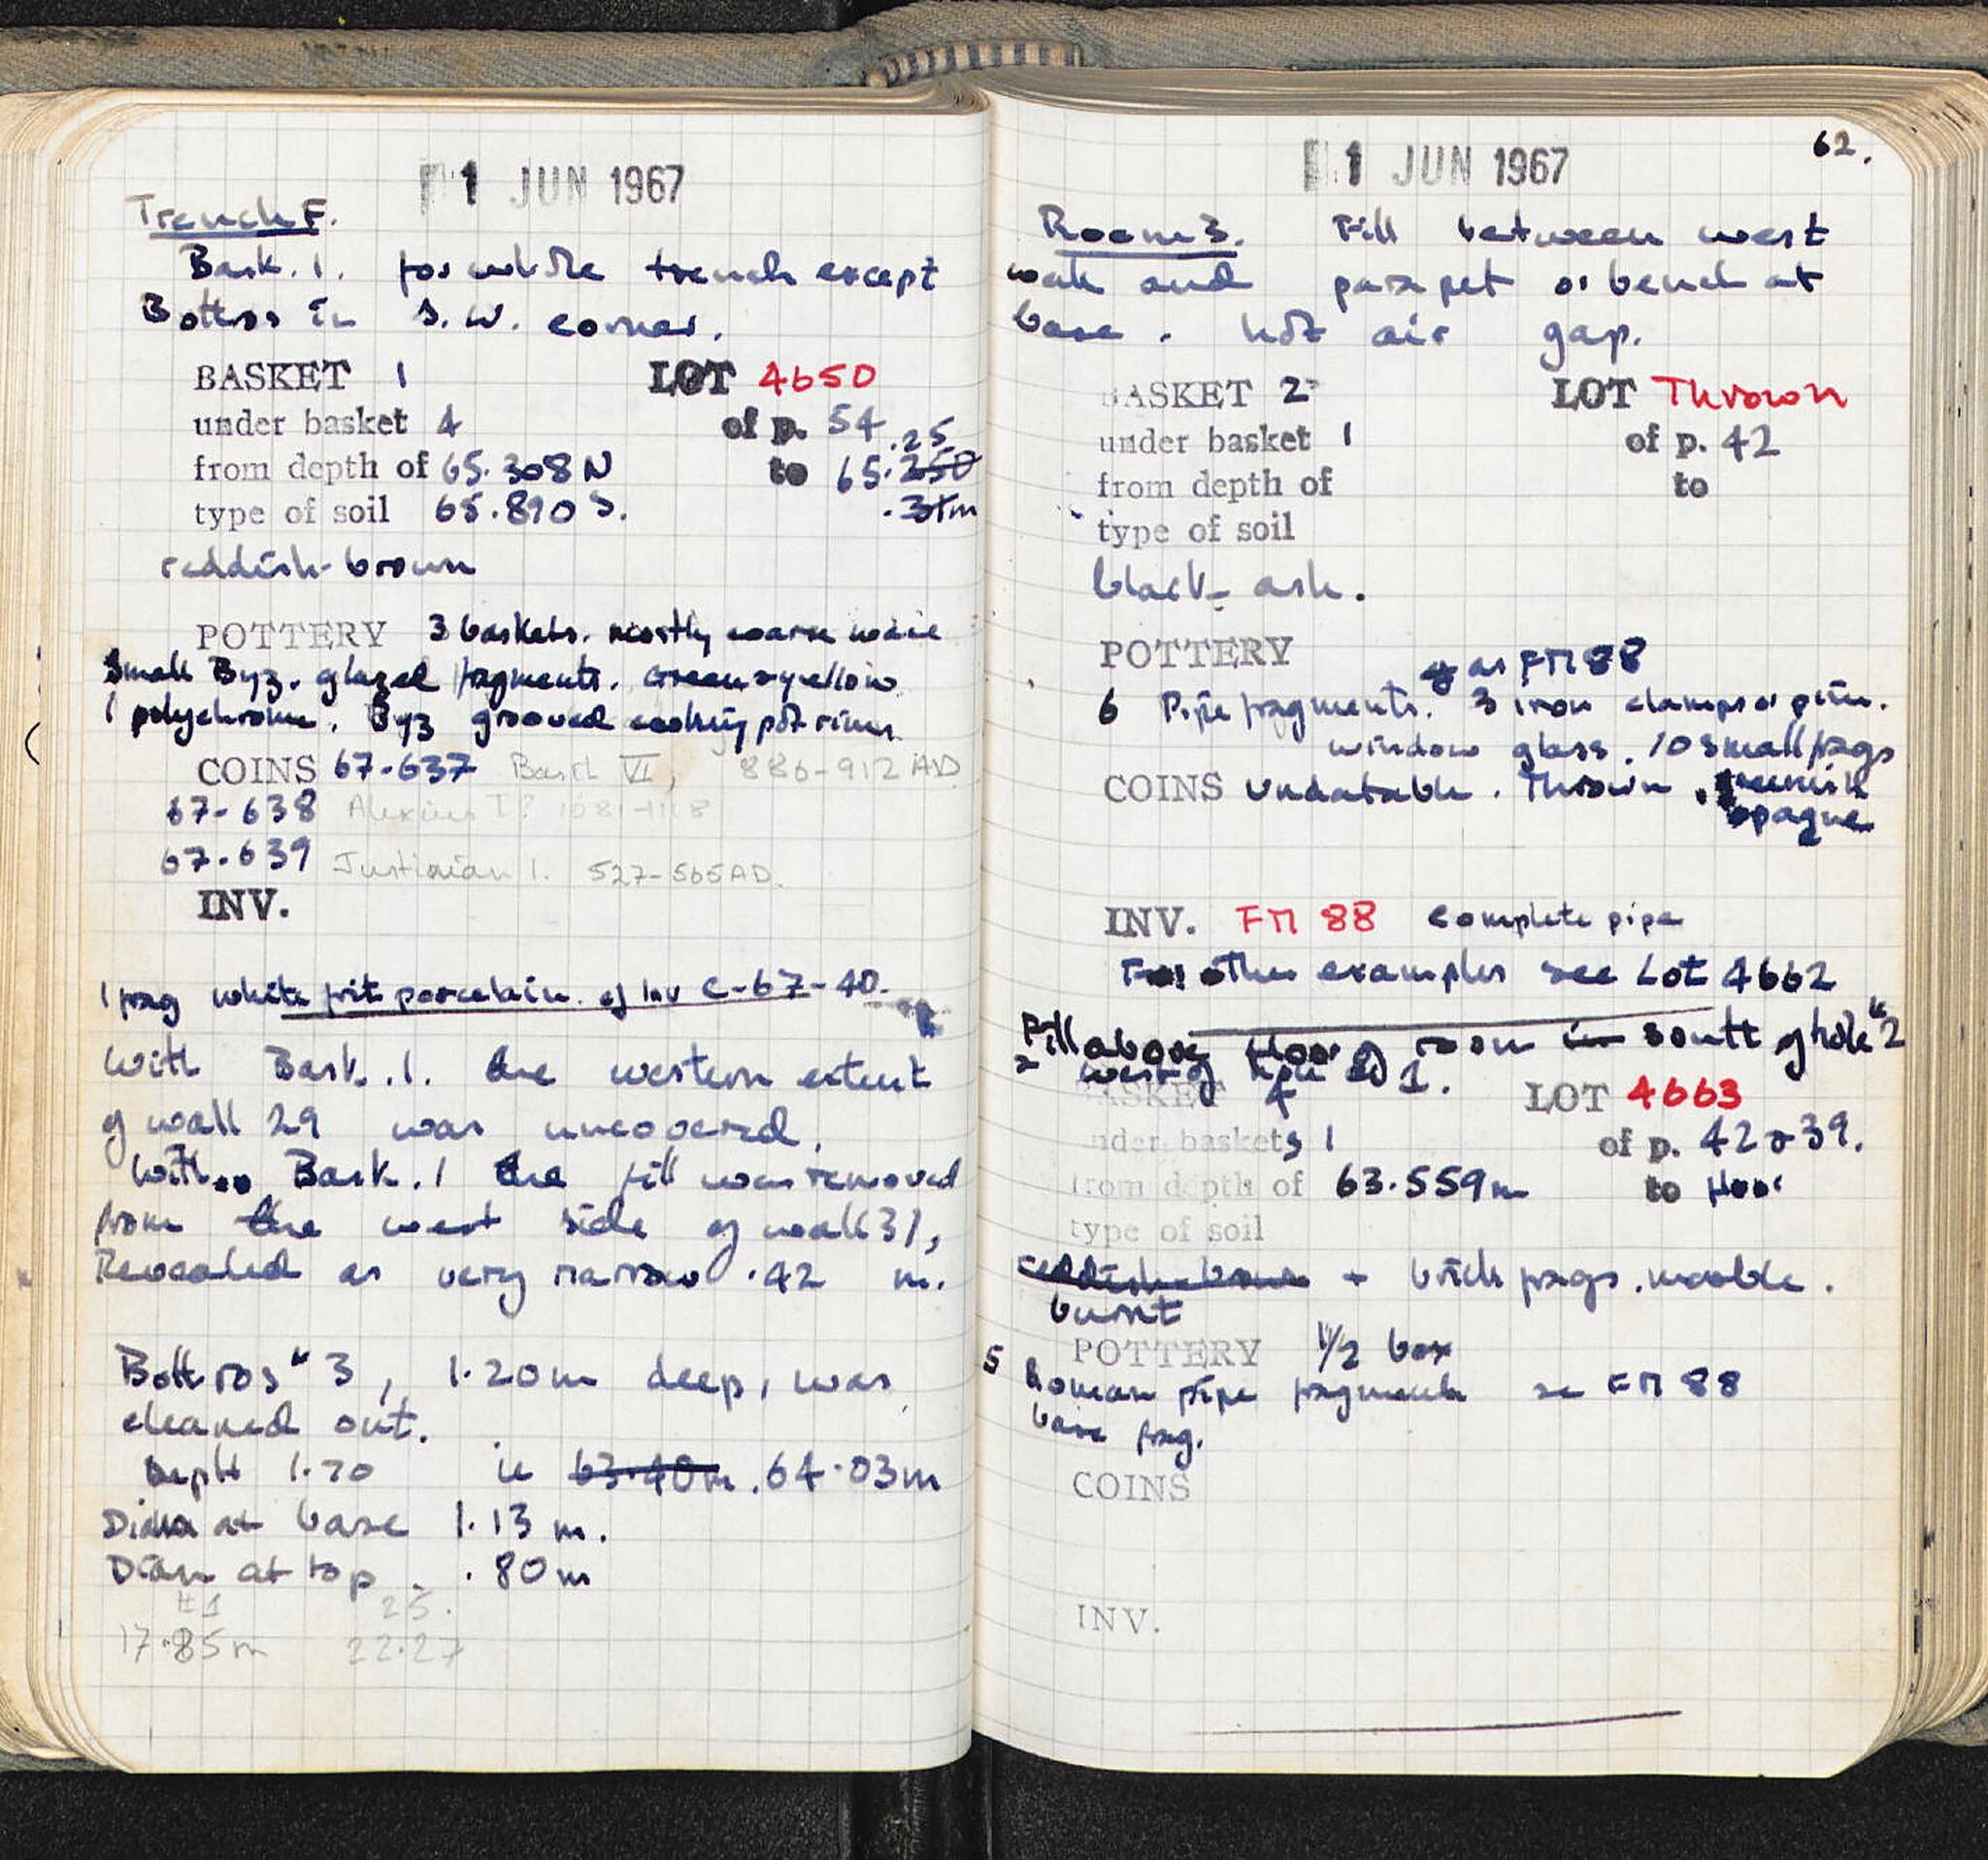 1 JUN 1967
Trench F.
Bask. 1. for whole trench except
Bothros in S.W. corner.
BASKET 1 LOT 4650
under basket 4 of p. 54
.25
from depth of 65.308 N to 65.250
type of soil 65.890 S. .31m
reddish-brown
POTTERY 3 baskets. mostly coarse ware
Small Byz. glazed fragments. Green & yellow
1 polychrome. Byz grooved cooking pot rims
COINS 67-637 Basil VI, 886-912 AD
67-638 Alexius I? 1081-1118
67-639 Justinian 1. 527-565 AD.
INV.
1 frag white frit porcelain. cf Inv C-67-40.
With Bask. 1. the western extent
of wall 29 was uncovered.
With Bask. 1 the fill was removed
from the west side of wall 31,
Revealed as very narrow .42 m.
Bothros #3, 1.20m deep, was
cleaned out.
Depth 1.70 ie 63.40m. 64.03m
Diam at base 1.13 m.
Diam at top . .80m
#1 25.
17.85m 22.27
62.
1 JUN 1967
Room 3. Fill between west
wall and parapet or bench at
base. hot air gap.
BASKET 2 LOT Thrown
under basket 1 of p. 42
from depth of to
type of soil
black ash.
POTTERY as FM 88
6 Pipe fragments. 3 iron clamps or pins.
window glass. 10 small frags
COINS undatable. Thrown. greenish
opaque
INV. FM 88 complete pipe
For other examples see Lot 4662
Fill above floor of room in south of hole #2
& west of hole 1.
BASKET 4 LOT 4663
under baskets 1 of p. 42 & 39.
from depth of 63.559m to floor
type of soil
reddish-brown + brick frags. marble.
burnt
POTTERY 1/2 box
5 Roman pipe fragments as FM 88
base frag.
COINS
INV.